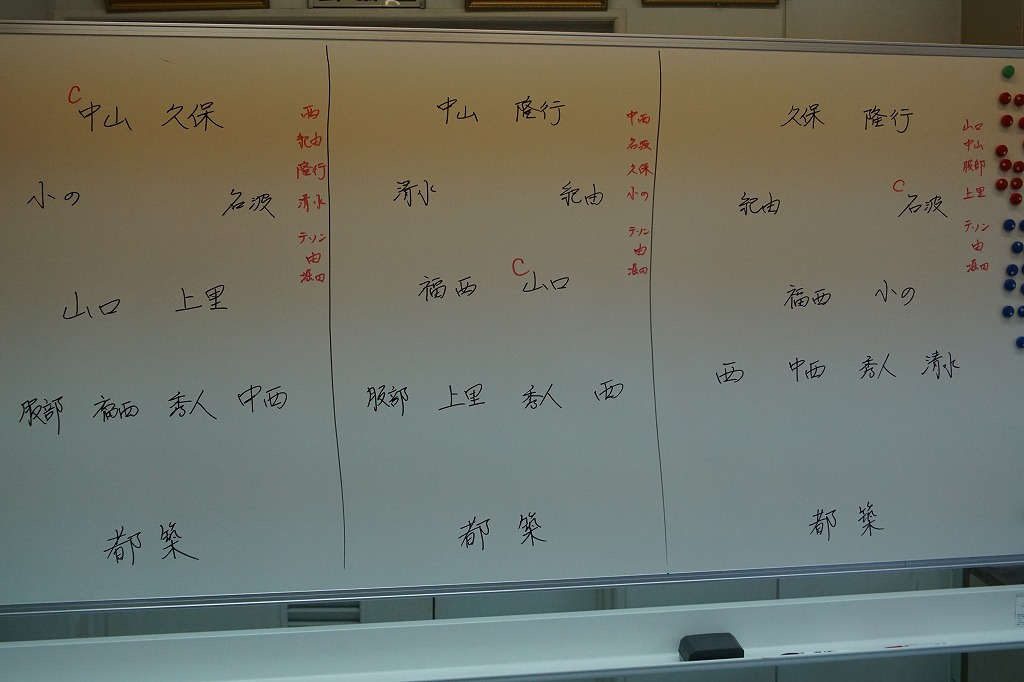 C
中山 久保
小の 名波
山口 上里
服部 福西 秀人 中西
都築
西
紀由
隆行
清水
テソン
由
中山 隆行
清水 紀由
C
福西 山口
服部 上里 秀人 西
都築
中西
名波
久保
小の
テソン
由
久保 隆行
C
紀由 名波
福西 小の
西 中西 秀人 清水
都築
山口
中山
服部
上里
テソン
由